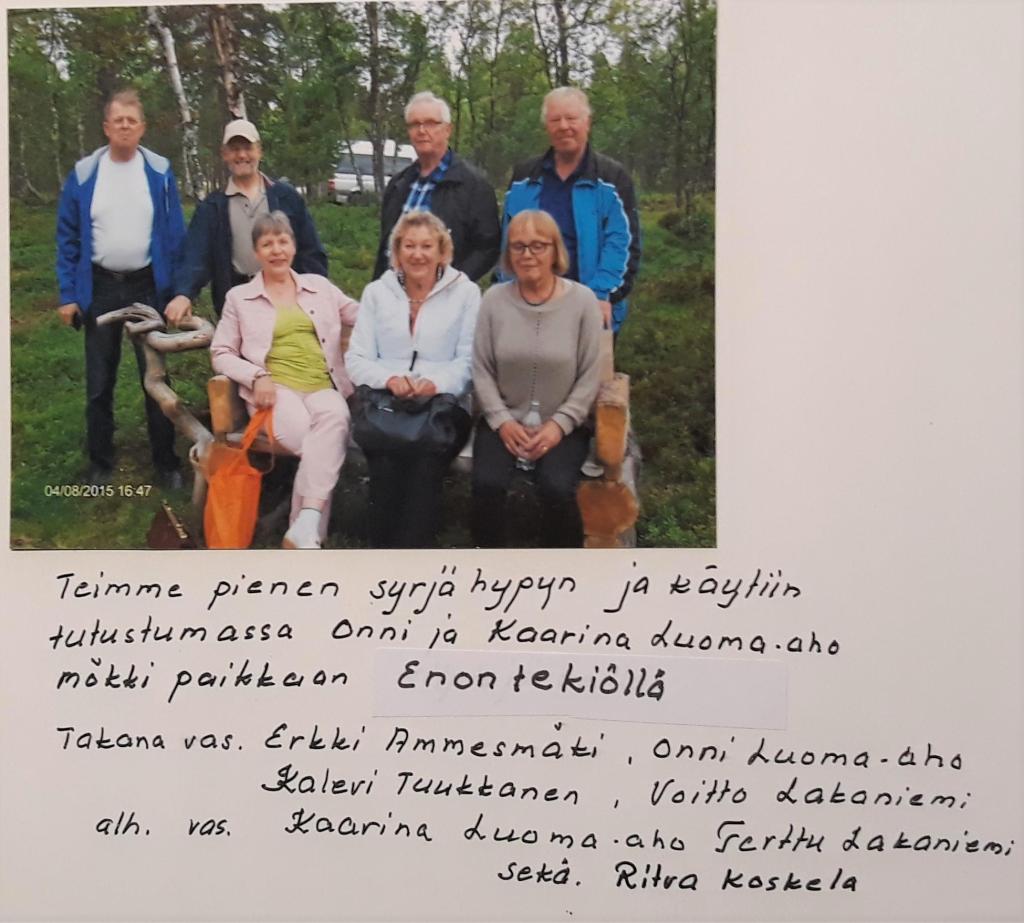 04/08/2015 16:47
Teimme pienen syrjä hypyn ja käytiin
tutustumassa Onni ja Kaarina Luoma-aho
mökki paikkaan Enontekiöllä
Takana vas. Erkki Ammesmäki, Onni Luoma-aho
Kalevi Tuukkanen, Voitto Lakaniemi
alh. vas. Kaarina Luoma-aho Terttu Lakaniemi
sekä. Ritva Koskela